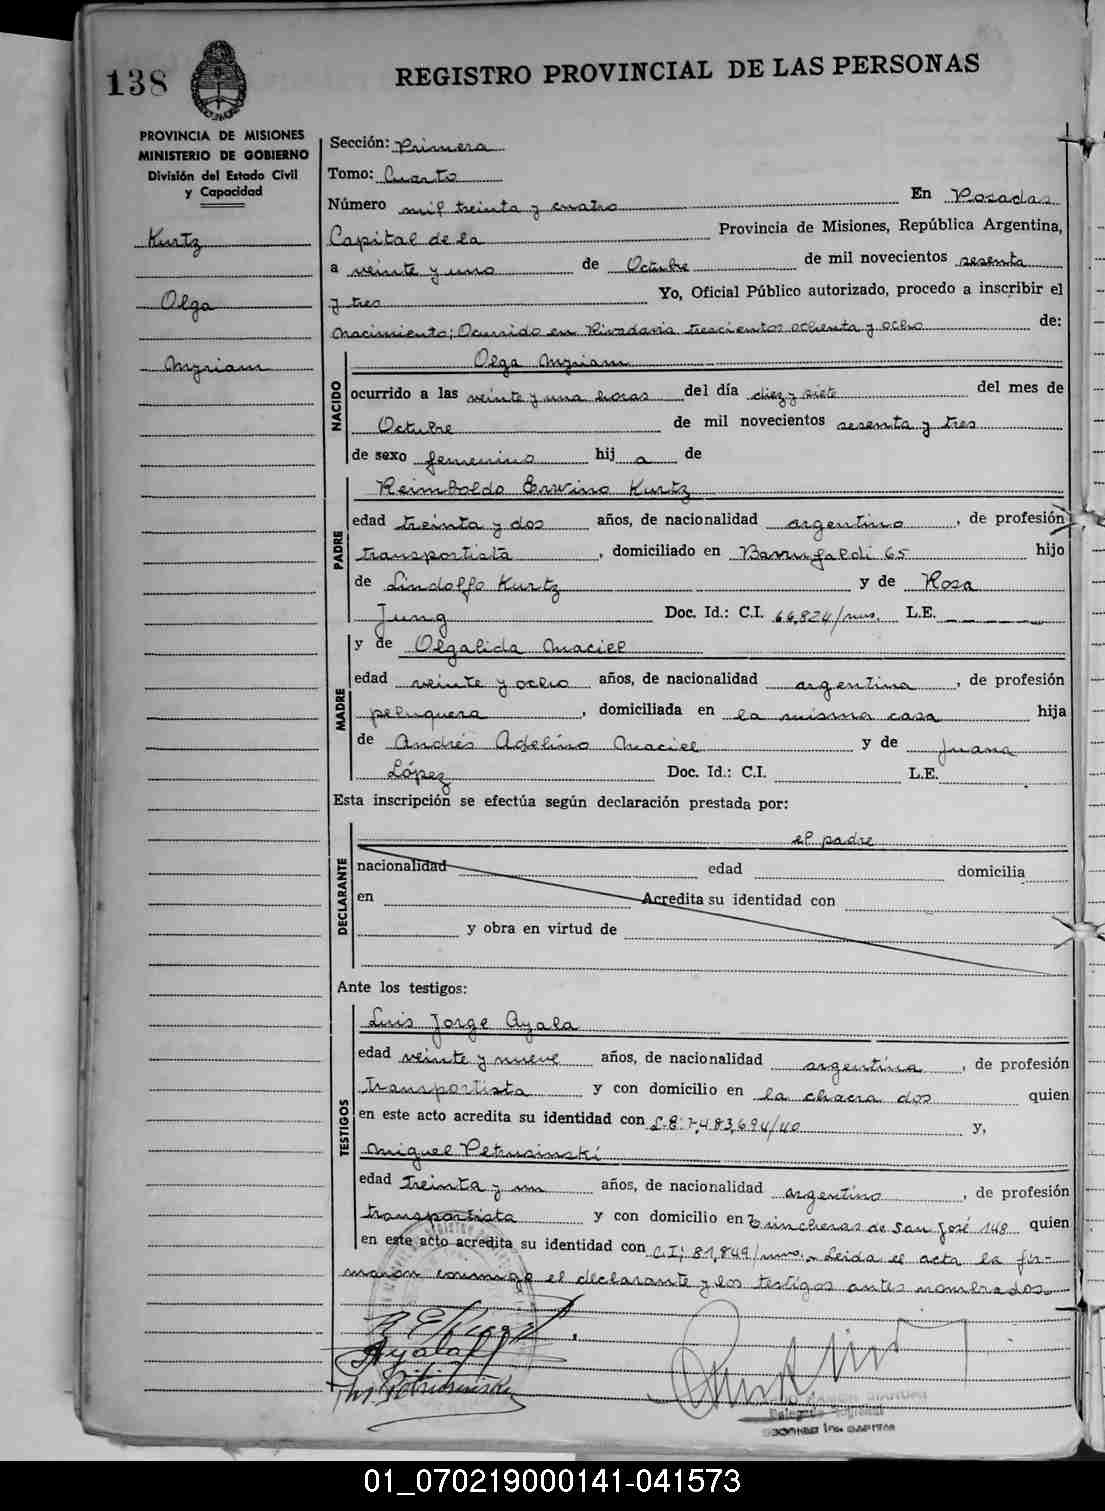 138
REGISTRO PROVINCIAL DE LAS PERSONAS
PROVINCIA DE MISIONES
MINISTERIO DE GOBIERNO
División del Estado Civil
y Capacidad
Kurtz
Olga
Myriam
Sección: Primera
Tomo: Cuarto
Número mil treinta y cuatro En Posadas
Capital de la Provincia de Misiones, República Argentina,
a veinte y uno de Octubre de mil novecientos sesenta
y tres Yo, Oficial Público autorizado, procedo a inscribir el
nacimiento; Ocurrido en Rivadavia trescientos ochenta y ocho de:
NACIDO
Olga Myriam
ocurrido a las veinte y una horas del día diez y siete del mes de
Octubre de mil novecientos sesenta y tres
de sexo femenino hij a de
PADRE
Reimboldo Erwino Kurtz
edad treinta y dos años, de nacionalidad argentino, de profesión
transportista, domiciliado en Barrufaldi 65 hijo
de Lindolfo Kurtz y de Rosa
Jung Doc. Id.: C.I. 66,824/mns. L.E.
y de Olgalida Maciel
MADRE
edad veinte y ocho años, de nacionalidad argentina, de profesión
peluquera, domiciliada en la misma casa hija
de Andrés Adelino Maciel y de Juana
López Doc. Id.: C.I. L.E.
Esta inscripción se efectúa según declaración prestada por:
DECLARANTE
el padre
nacionalidad edad domicilia
en Acredita su identidad con
y obra en virtud de
Ante los testigos:
TESTIGOS
Luis Jorge Ayala
edad veinte y nueve años, de nacionalidad argentina, de profesión
transportista y con domicilio en la chacra dos quien
en este acto acredita su identidad con L.E: 7,483,694/40 y,
Miguel Petrusinski
edad treinta y un años, de nacionalidad argentino, de profesión
transportista y con domicilio en Trincheras de San José 148 quien
en este acto acredita su identidad con C.I; 81,849/mns.- Leida el acta la fir-
maron conmigo el declarante y los testigos antes nombrados.
Ayala
01_070219000141-041573